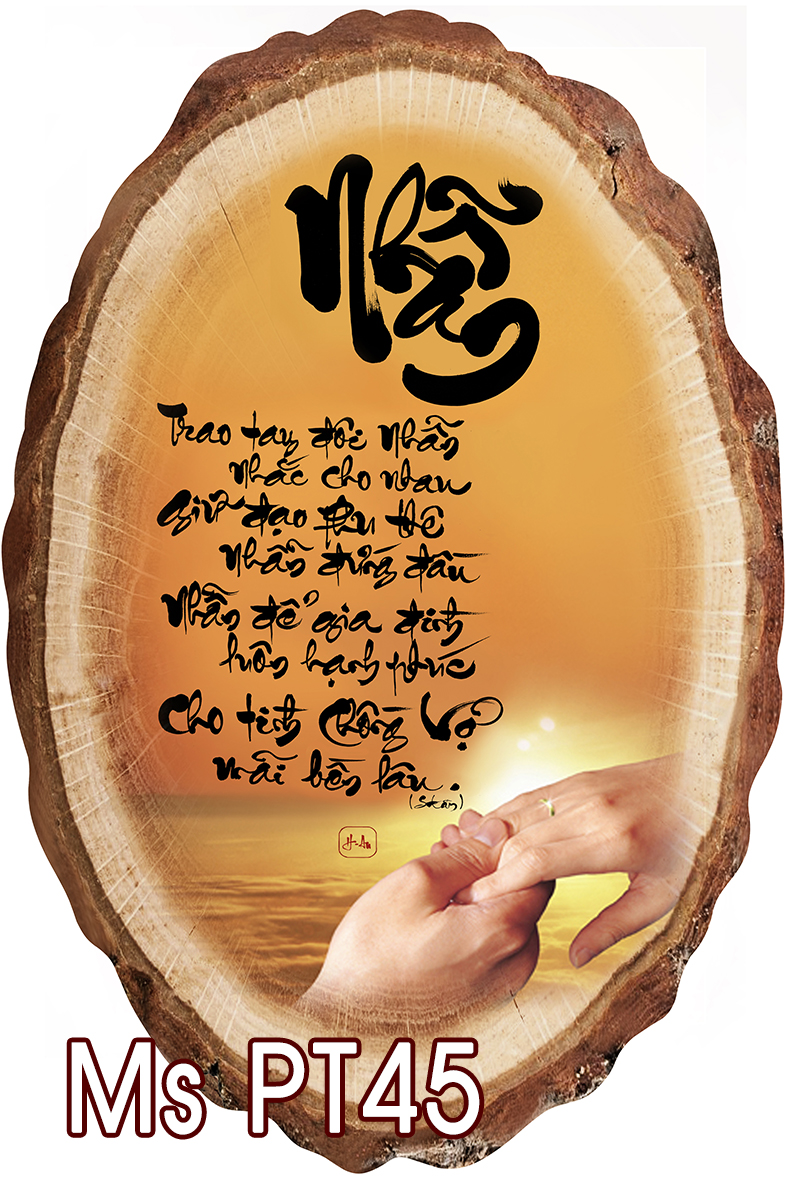 Nhẫn
Trao tay đôi Nhẫn
Nhắc cho nhau
Giữ đạo Phu thê
Nhẫn đứng đầu
Nhẫn để gia đình
luôn hạnh phúc
Cho tình Chồng Vợ
mãi bền lâu.
H-An
Ms PT45